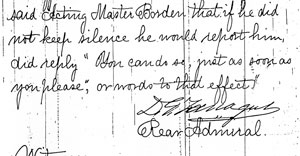 said Acting Master Borden that if he did
not keep silence he would report him,
did reply "You can do so, just as soon as
you please", or words to that effect."
D G Farragut
Rear Admiral.